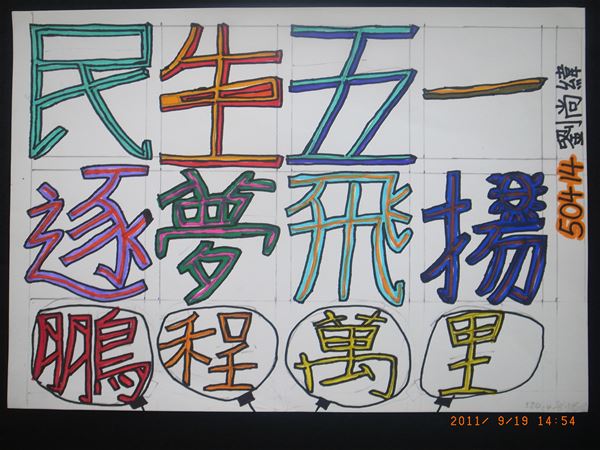 民生五一
逐夢飛揚
鵬程萬里
50414 劉尚緯
2011/ 9/19 14:54